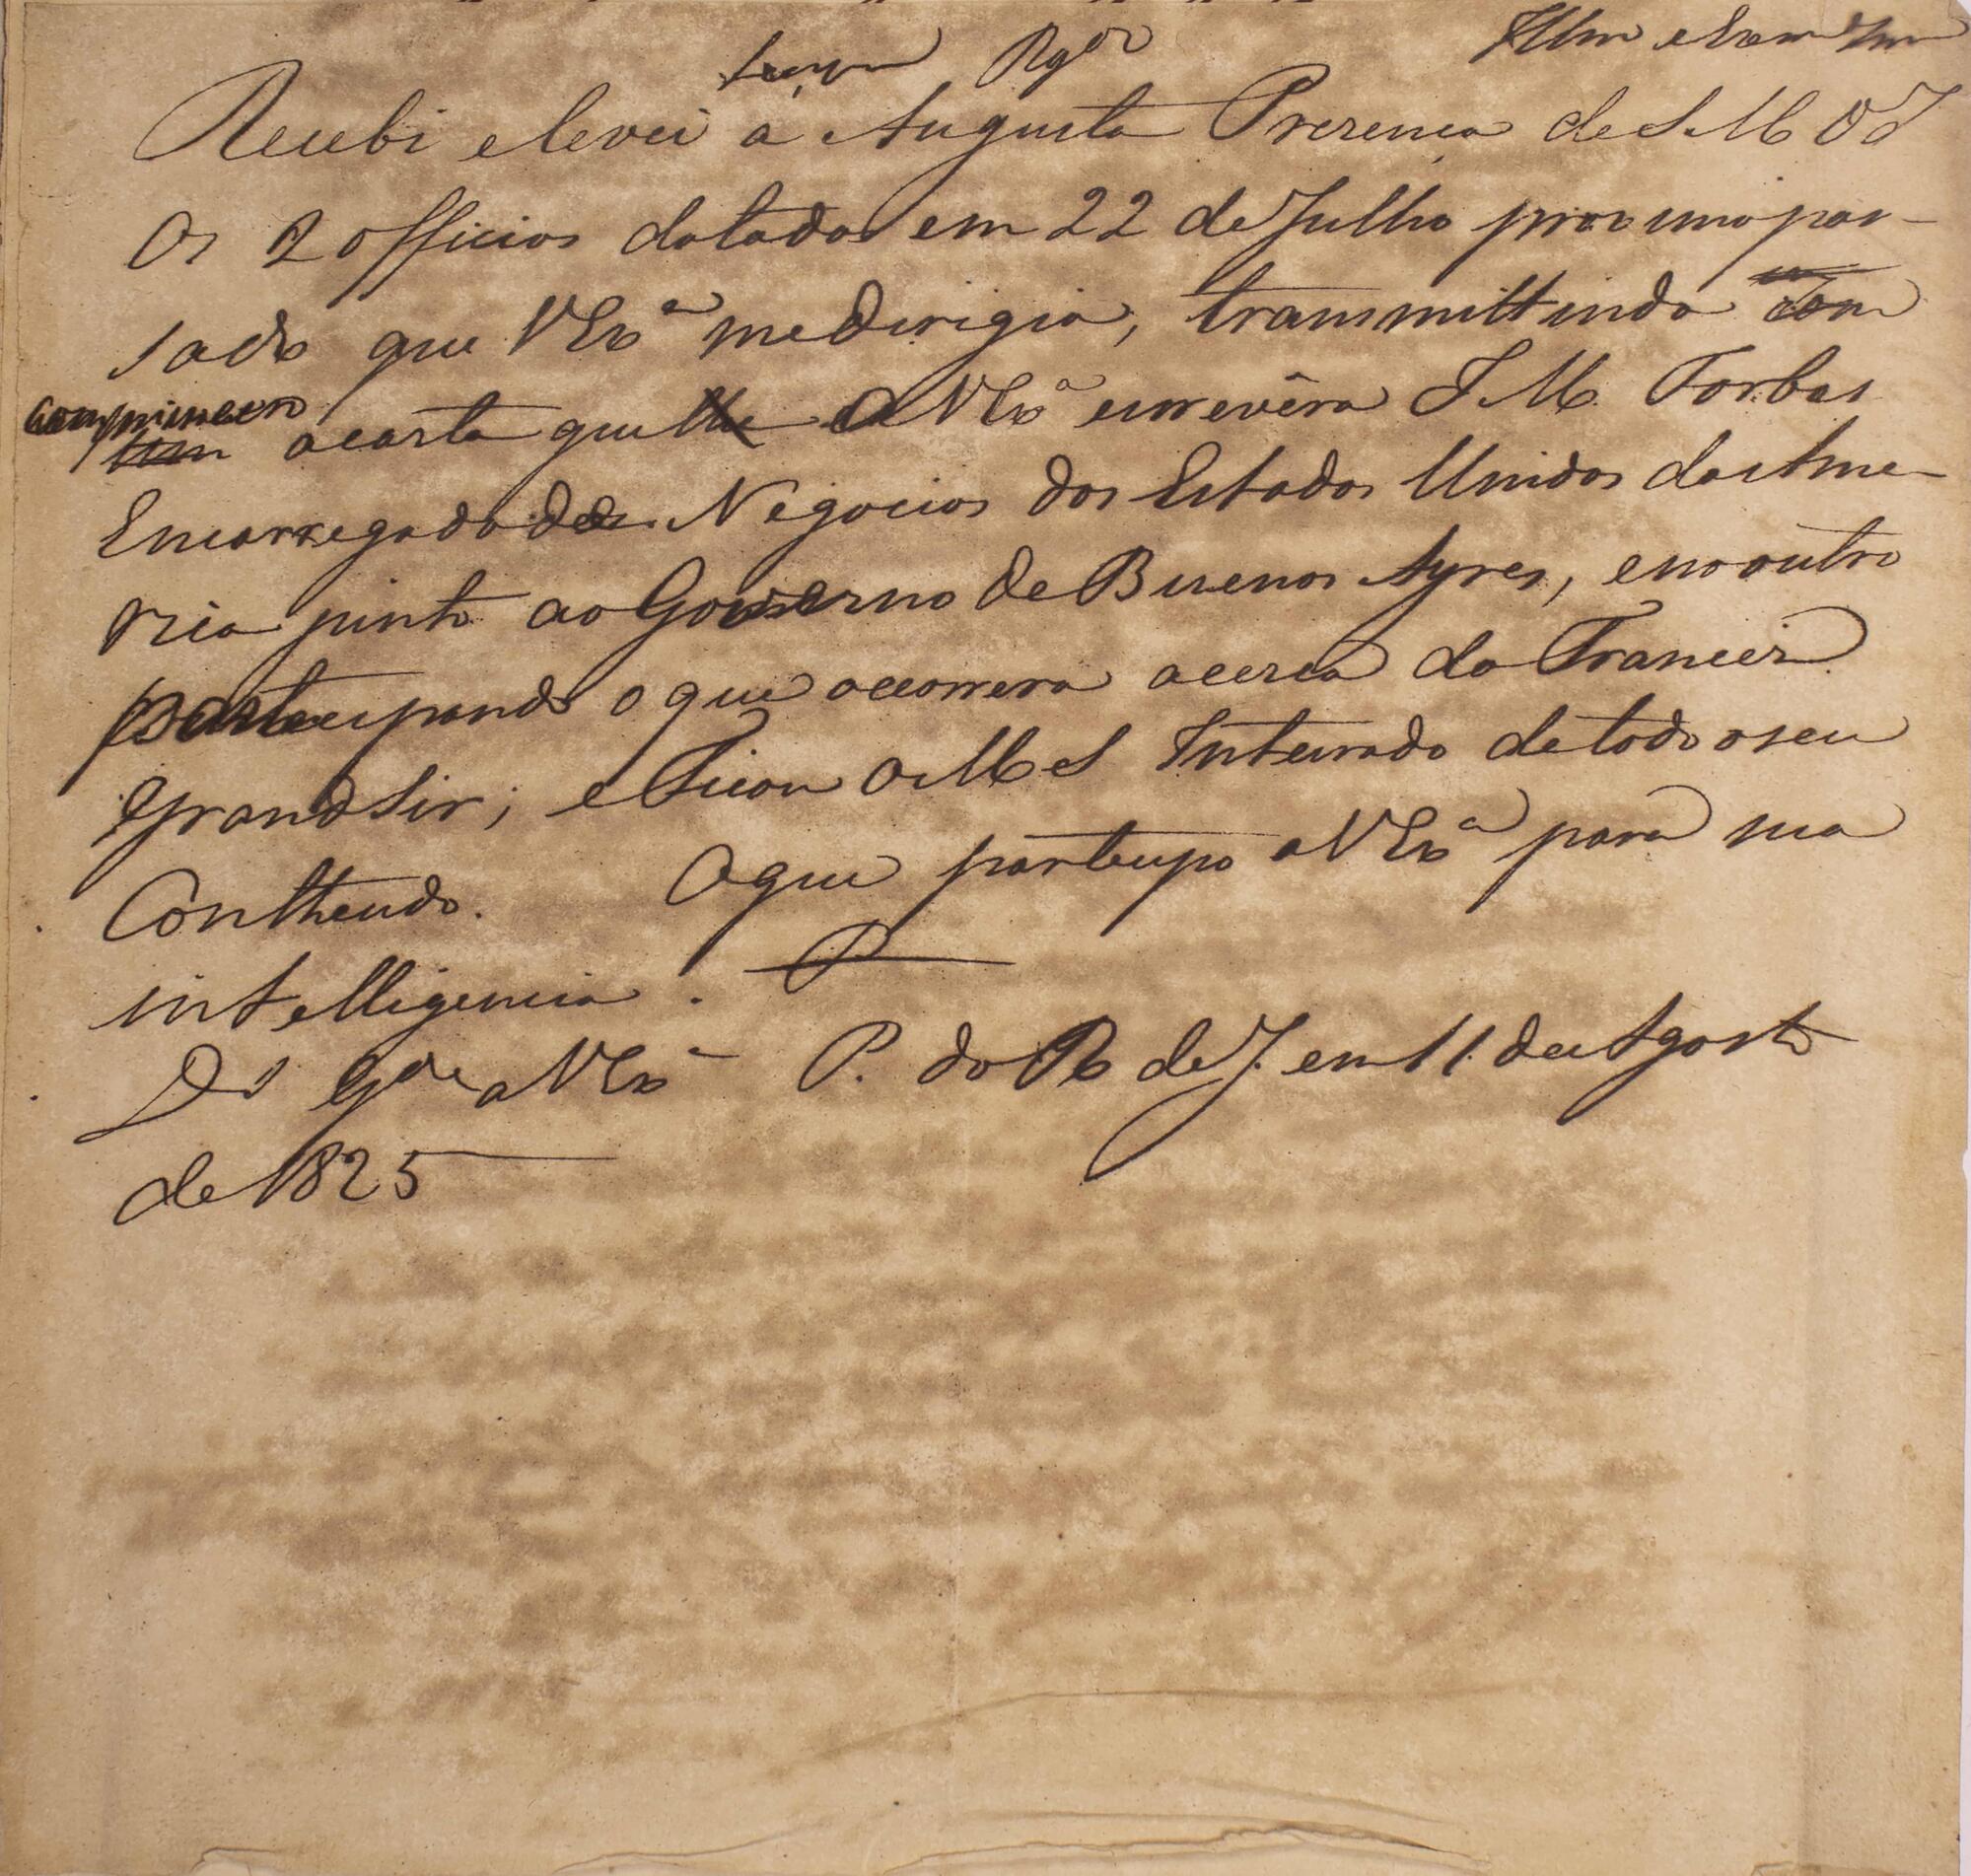 Illm e Exm Snr
Recebi e levei á Augusta Presença de S M O I
Os 2 officios datados em 22 de Julho proximo pas-
sado que V Ex.ª me dirigio, transmittindo com
com o primeiro a carta que lhe a V Ex.ª escrevêra J. M. Forbes
Encarregado de Negocios dos Estados Unidos da Ame-
rica junto ao Governo de Buenos Ayres, e no outro
participando o que occorrera acerca do Francez
Grandsir; e Ficou O M S Inteirado de todo o seu
Contheudo. O que participo a V Ex.ª para sua
intelligencia.
Ds Gde a V Ex.ª P. do R de J. em 11 de Agosto
de 1825